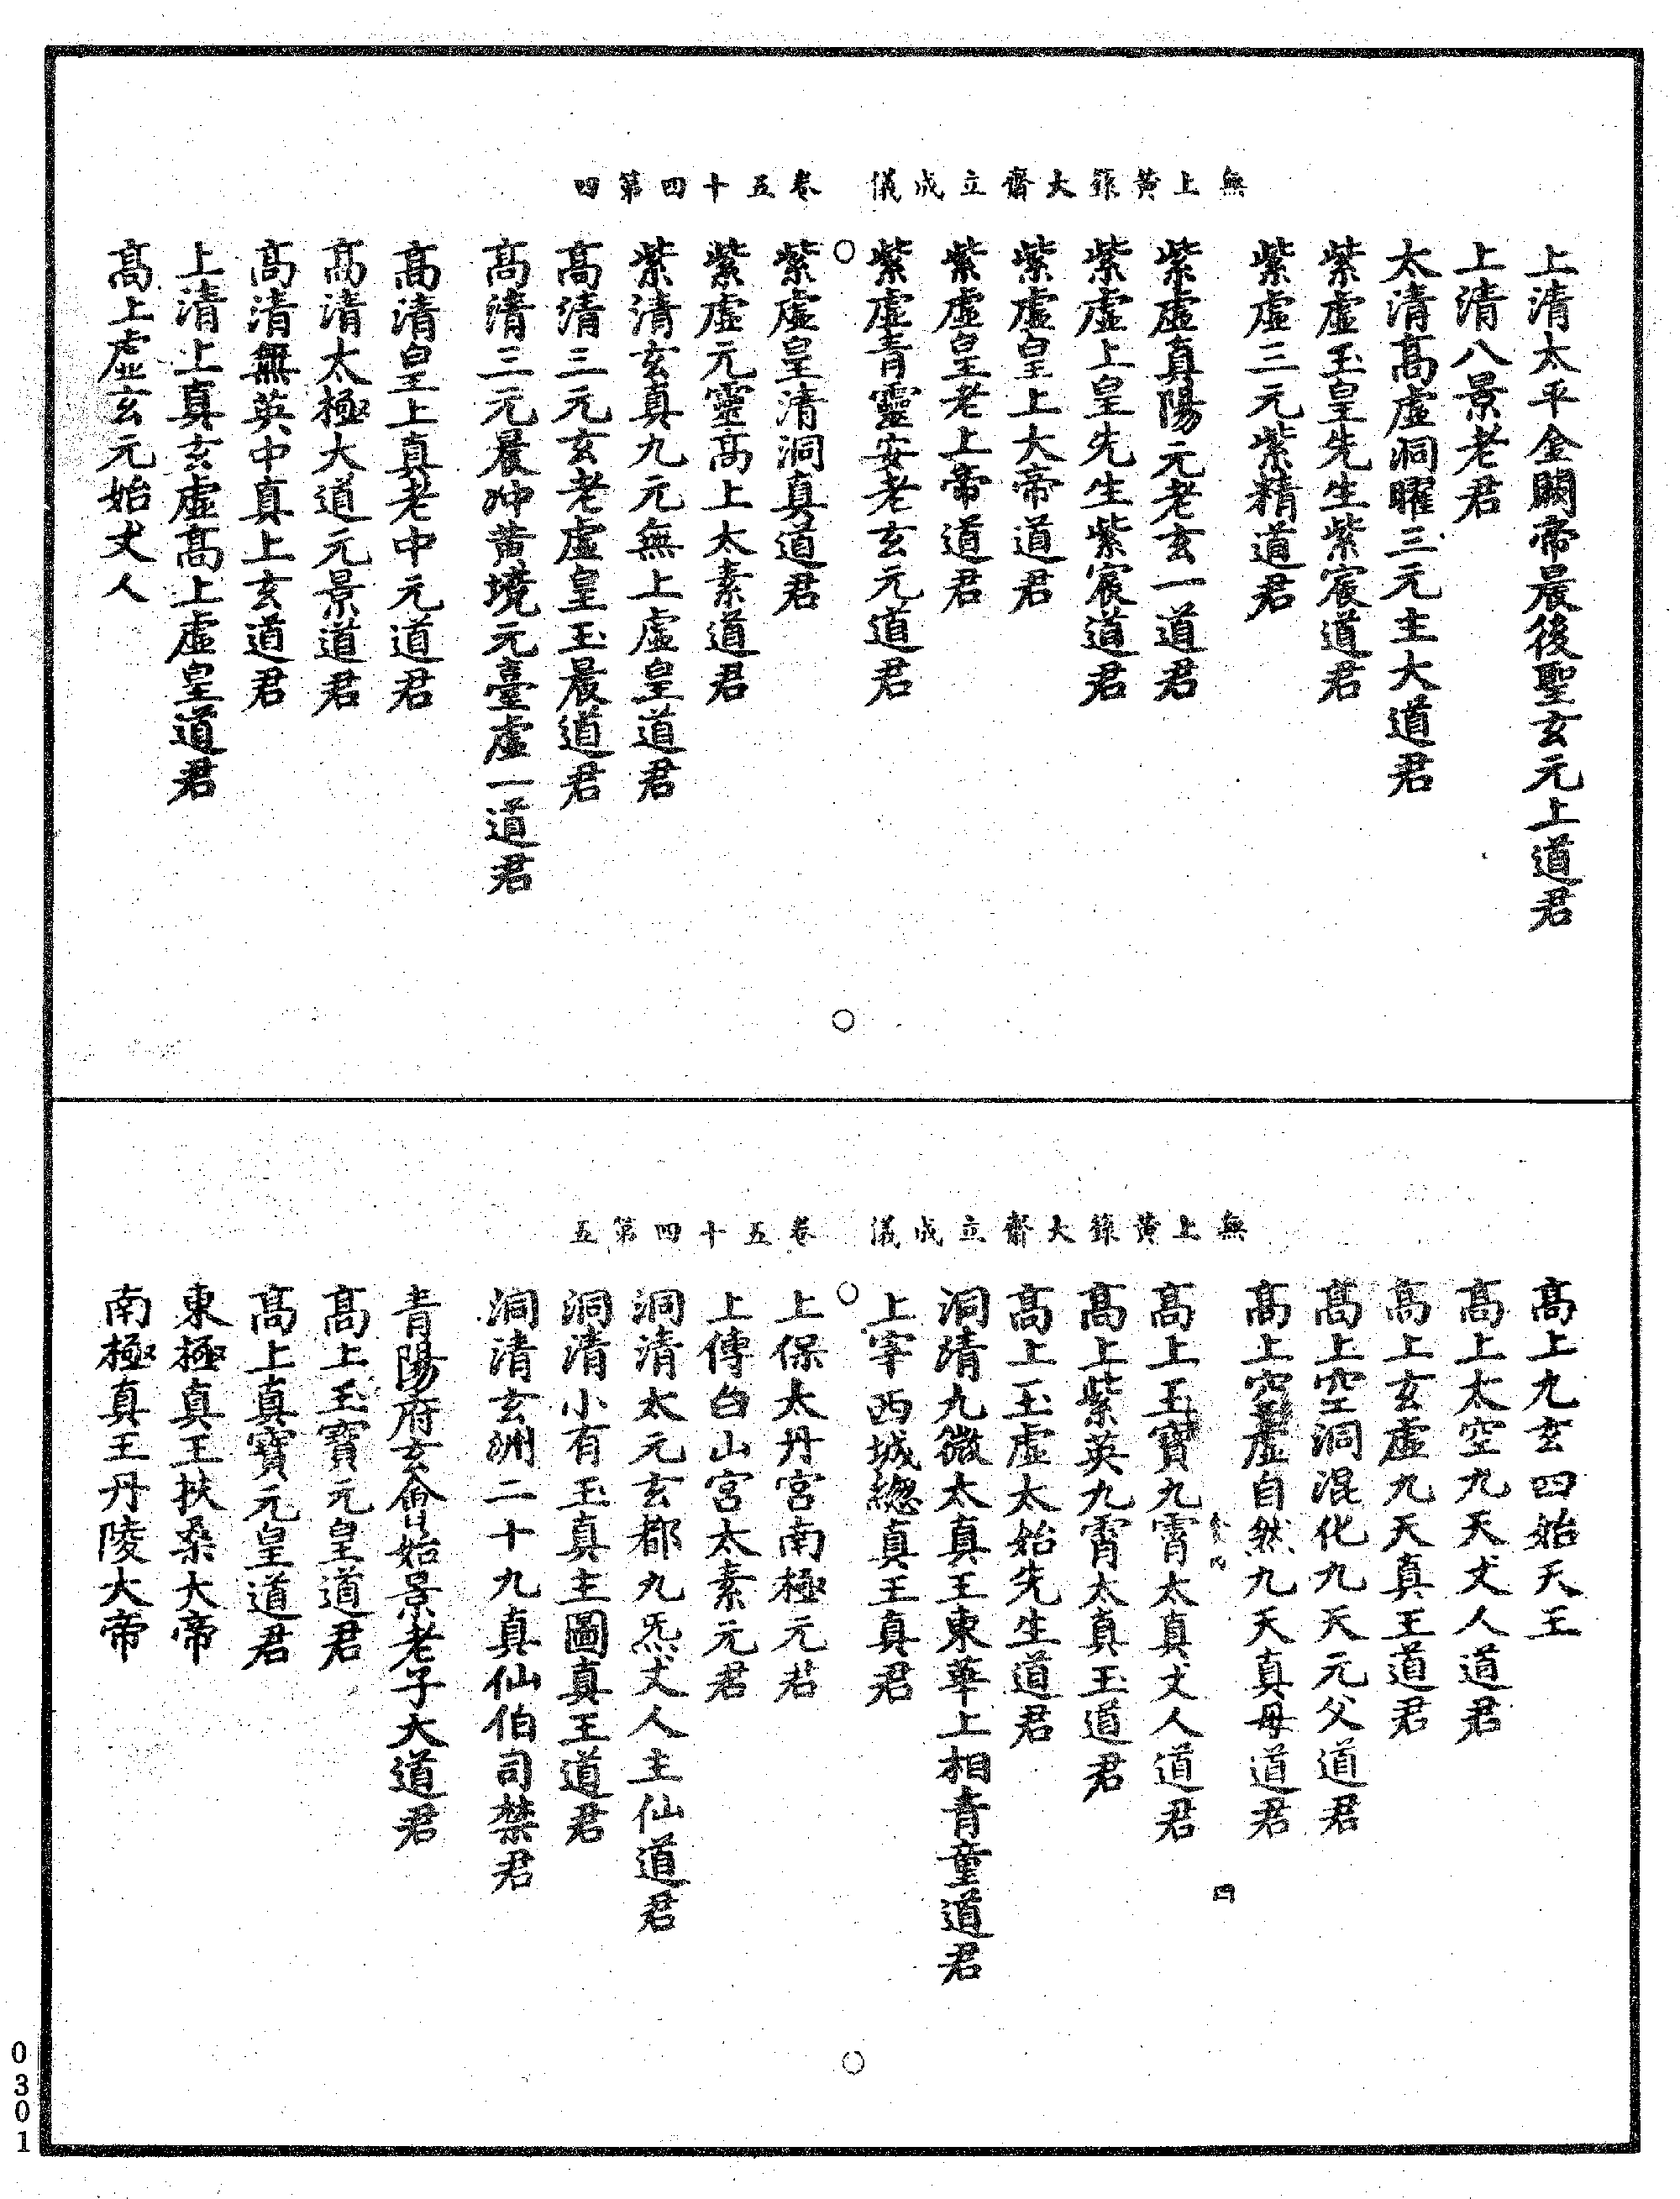 無上黃籙大齋立成儀　卷五十四第四
上清太平金闕帝晨後聖玄元上道君
上清八景老君
太清高虛洞曜三元主大道君
紫虛玉皇先生紫宸道君
紫虛三元紫精道君
紫虛真陽元老玄一道君
紫虛上皇先生紫宸道君
紫虛皇上大帝道君
紫虛皇老上帝道君
紫虛青靈安老玄元道君
紫虛皇清洞真道君
紫虛元靈高上太素道君
紫清玄真九元無上虛皇道君
高清三元玄老虛皇玉晨道君
高清三元晨冲黃境元臺虛一道君
高清皇上真老中元道君
高清太極大道元景道君
高清無英中真上玄道君
上清上真玄虛高上虛皇道君
高上虛玄元始丈人
無上黃籙大齋立成儀　卷五十四第五
高上九玄四始天王
高上太空九天丈人道君
高上玄虛九天真王道君
高上空洞混化九天元父道君
高上空虛自然九天真母道君
四
高上玉寶九霄太真丈人道君
高上紫英九霄太真玉道君
高上玉虛太始先生道君
洞清九微太真王東華上相青童道君
上宰西城總真王真君
上保太丹宮南極元君
上傳白山宮太素元君
洞清太元玄都九炁丈人主仙道君
洞清小有玉真主圖真王道君
洞清玄洲二十九真仙伯司禁君
青陽府玄會始景老子大道君
高上玉寶元皇道君
高上真寶元皇道君
東極真王扶桑大帝
南極真王丹陵大帝
0301